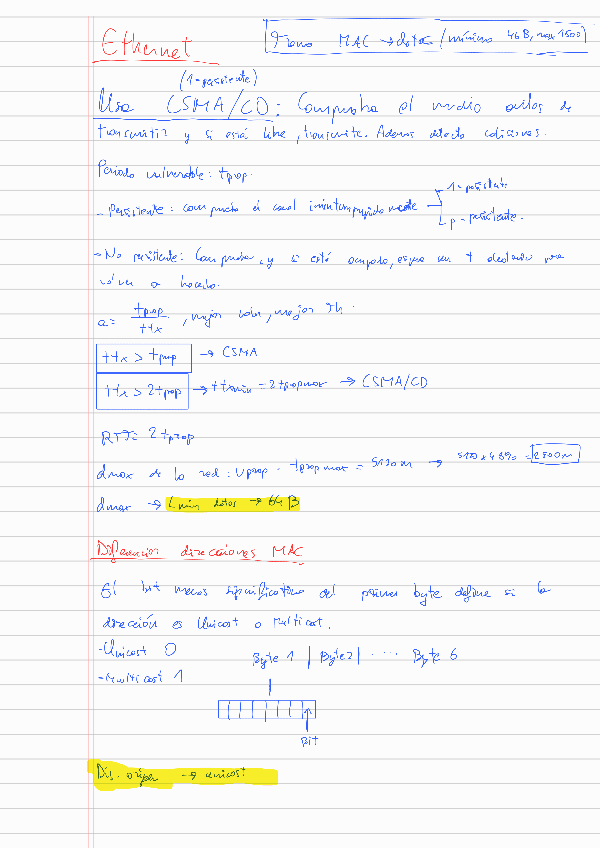 Ethernet
Trama MAC → datos (mínimo 46B, max 1500)
(1-persistente)
Usa CSMA/CD: Comprueba el medio antes de
transmitir y si está libre, transmite. Además detecta colisiones.
Periodo vulnerable: tprop.
- Persistente: comprueba el canal ininterrumpidamente
1-persistente
p-persistente.
- No persistente: Comprueba, y si está ocupado, espera un t aleatorio para
volver a hacerlo.
a = tprop / ttx , mejor, mejor Th.
ttx > tprop → CSMA
ttx > 2tprop → ttxmin = 2tpropmax → CSMA/CD
RTT = 2tprop
dmax de la red: Vprop · tpropmax = 5120m → = 2500m
dmax → Lmin datos → 64B
Diferencias direcciones MAC
El bit menos significativo del primer byte define si la
dirección es Unicast o Multicast.
- Unicast 0
- Multicast 1
Byte 1 | Byte 2 | ···· Byte 6
Bit
Dir. origen → unicast